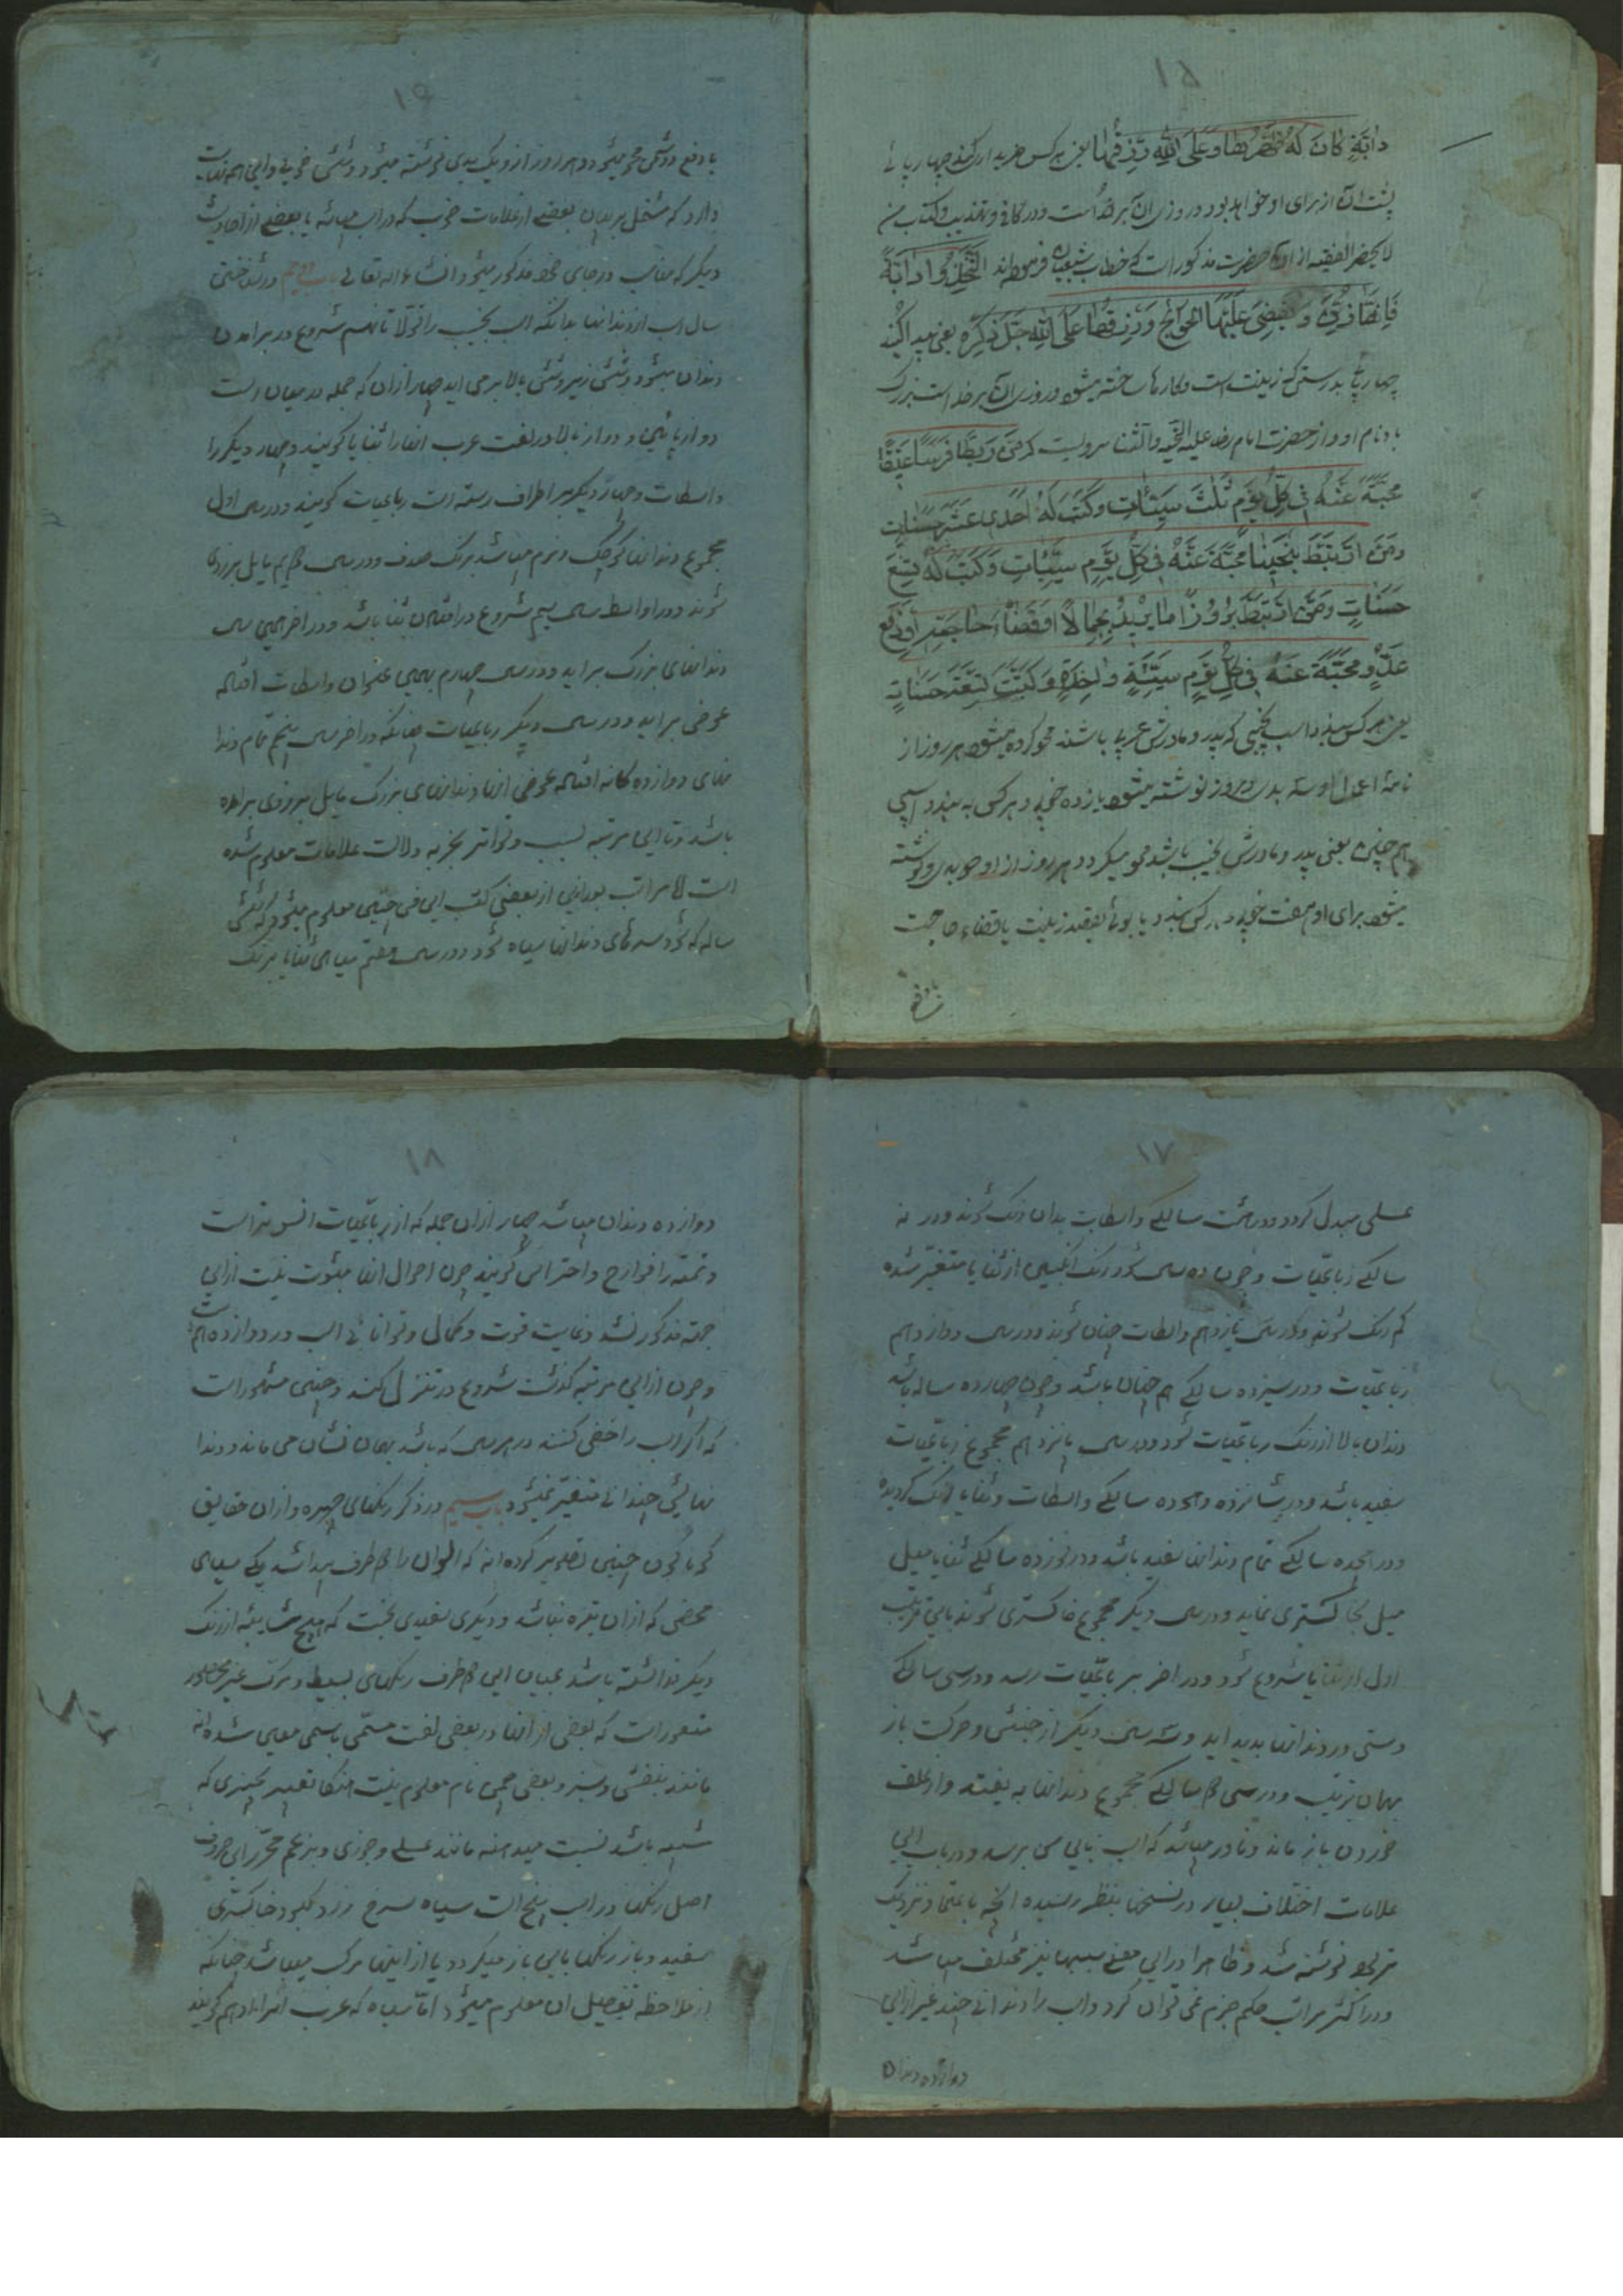 ۱۵
دابة کان له ظهرها و علی الله رزقها یعنی هر کس خریداری کند چهارپائی
پشت آن از برای او خواهد بود و روزی آن بر خداست و در کافی و تهذیب و کتاب من
لا یحضر الفقیه از آن حضرت مذکور است که خطاب بشیعیان فرموده‌اند اتخذوا دابة
فانها زین و تقضی علیها الحوائج و رزقها علی الله جل ذکره یعنی پیدا کنید
چهارپا بدرستی که زینت است و کارها ساخته میشود و روزی آن بر خداست بزرگ
باد نام او و از حضرت امام رضا علیه التحیه والثنا مرویست که من ربط فرسا عتیقا
محیت عنه فی کل یوم ثلث سیئات و کتب له احدی عشر حسنات
ومن ارتبط هجینا محیت عنه فی کل یوم سیئتات و کتب له تسع
حسنات ومن ارتبط برذونا ما یرید به جمالا او قضاء حاجته او دفع
عدو محیت عنه فی کل یوم سیئة واحدة و کتبت له ست حسنات
یعنی هر کس ببندد اسب نجیبی که پدر و مادرش عربی باشند محو کرده میشود هر روز از
نامه اعمال او سه بدی و هر روز نوشته میشود یازده خوبی و هر کس به بندد اسبی
هم چنین یعنی پدر و مادرش نجیب باشد محو میگردد هر روز از او دو بدی و نوشته
میشود برای او هفت خوبی و هر کس ببندد یابوئی بقصد زینت یا قضاء حاجت
یا دفع
۱۶
یا دفع دشمن محو میشود هر روز از او یک بدی نوشته میشود و شش خوبی و این
دارد که مشتمل بر بیان بعضی از علامات خوب که در اسب میباشد با بعضی از احادیث
دیگر که مناسب در جای خود مذکور میشود انشاء الله تعالی باب دویم در شناختن
سال اسب از دندانها بدانکه اسب نجیب را تا نهم شروع در برآمدن
دندان میشود و شش زیر و شش بالا برمی آید چهار از آن که جمله در میان است
دو از پائین و دو از بالا در لغت عرب آنها را ثنایا گویند و چهار دیگر را
واسطات و چهار دیگر بر اطراف رسته است رباعیات گویند و در سال اول
مجموع دندانها کوچک و نرم میباشد برنگ صدف و در سال دویم مایل بزردی
شوند و در اواسط سال سیم شروع در افتادن ثنایا باشد و در آخر همین سال
دندانهای بزرگ برآید و در سال چهارم بهمین عنوان واسطات افتاده
عوض برآید و در سال دیگر رباعیات چنانکه در آخر سال پنجم تمام دندا
نهای دوازده گانه افتاده عوض آنها دندانهای بزرگ مایل بزردی برآمده
باشد و تا این مرتبه بسبب تواتر تجربه دلالت علامات معلوم شده
است اما مراتب بعد از این از بعضی کتب این فن چنین معلوم میشود که شش
ساله که شود سرهای دندانها سیاه شود و در سال هفتم سیاهی ثنایا برنگ
۱۷
عسلی مبدل گردد و در هشت سالگی واسطات بدان رنگ شوند و در نه
سالگی رباعیات و چون ده سال شود رنگ انگبین از ثنایا متغیر شده
کم رنگ شوند و در سال یازدهم واسطات چنان شوند و در سال دوازدهم
رباعیات و در سیزده سالگی هم چنان باشد و چون چهارده ساله باشد
دندان بالا از رنگ رباعیات شود و در سال پانزدهم مجموع رباعیات
سفید باشد و در شانزده و هجده سالگی واسطات و ثنایا رنگ گردیده
در هجده سالگی تمام دندانها سفید باشد و در نوزده سالگی ثنایا میل
میل بخاکستری نماید و در سال دیگر مجموع خاکستری شوند باین ترتیب
اول از ثنایا شروع شود و در آخر بر رباعیات رسد و در سی سالگی
سستی در دندانها پدید آید و سه سال دیگر از جنبش و حرکت باز
بهمان ترتیب و در سی و دو سالگی مجموع دندانها به یفتد و از علف
خوردن باز ماند و نادر میباشد که اسب باین سن برسد و در باب این
علامات اختلاف بسیار در نسخها بنظر رسیده آنچه باعتماد نزدیک
تر بود نوشته شد و ظاهرا در این معنی سببها نیز مختلف میباشد
و در اکثر مراتب حکم جزم نمی توان کرد و اسب را دندانی چند غیر از این
دوازده دندان
۱۸
دوازده دندان میباشد چهار از آن جمله که از رباعیات انسی تر است
و تتمه را قوارح و اضراس گویند چون احوال آنها مثبوت نیست از این
جهة مذکور نشد و غایت قوت و کمال و توانائی اسب در دوازدهم است
و چون از این مرتبه گذشت شروع در تنزل کند و چنین مشهور است
که اگر اسب را خصی کنند در هر سال که باشد بهمان نشان می ماند و دندا
نهایش چندانی متغیر نمیشود باب سیم در ذکر رنگهای چهره و از آن حقایق
گوناگون چنین تصویر کرده‌اند که الوان را دو طرف میباشد یکی سیاهی
محضی که از آن تیره نباشد و دیگری سفیدی بحت که هیچ شایبه از رنگ
دیگر نداشته باشد بمیان این دو طرف رنگهای بسیط و مرکب غیر محصور
متصور است که بعضی از آنها در بعضی لغت مسمی باسمی معین شده‌اند
مانند بنفش و سبز و بعضی چون نام معلوم نیست آنکا تعبیر بچیزی که
شبیه باشد نسبت میدهند مانند عسلی و جوزی و بزعم محرر این حروف
اصل رنگها در اسب پنج است سیاه سرخ زرد کبود خاکستری
سفید و باز رنگها باین باز میگردد یا از اینها مرکب میباشد چنانکه
از ملاحظه تفصیل آن معلوم میشود اما سیاه که عرب آنرا ادهم گویند